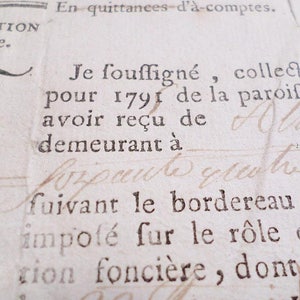 En quittances d'à-comptes.
TION
e.
Je souſſigné, collect
pour 1791 de la paroiſ
avoir reçu de
demeurant à
Soixante quatre
ſuivant le bordereau
impoſé ſur le rôle
tion foncière, dont